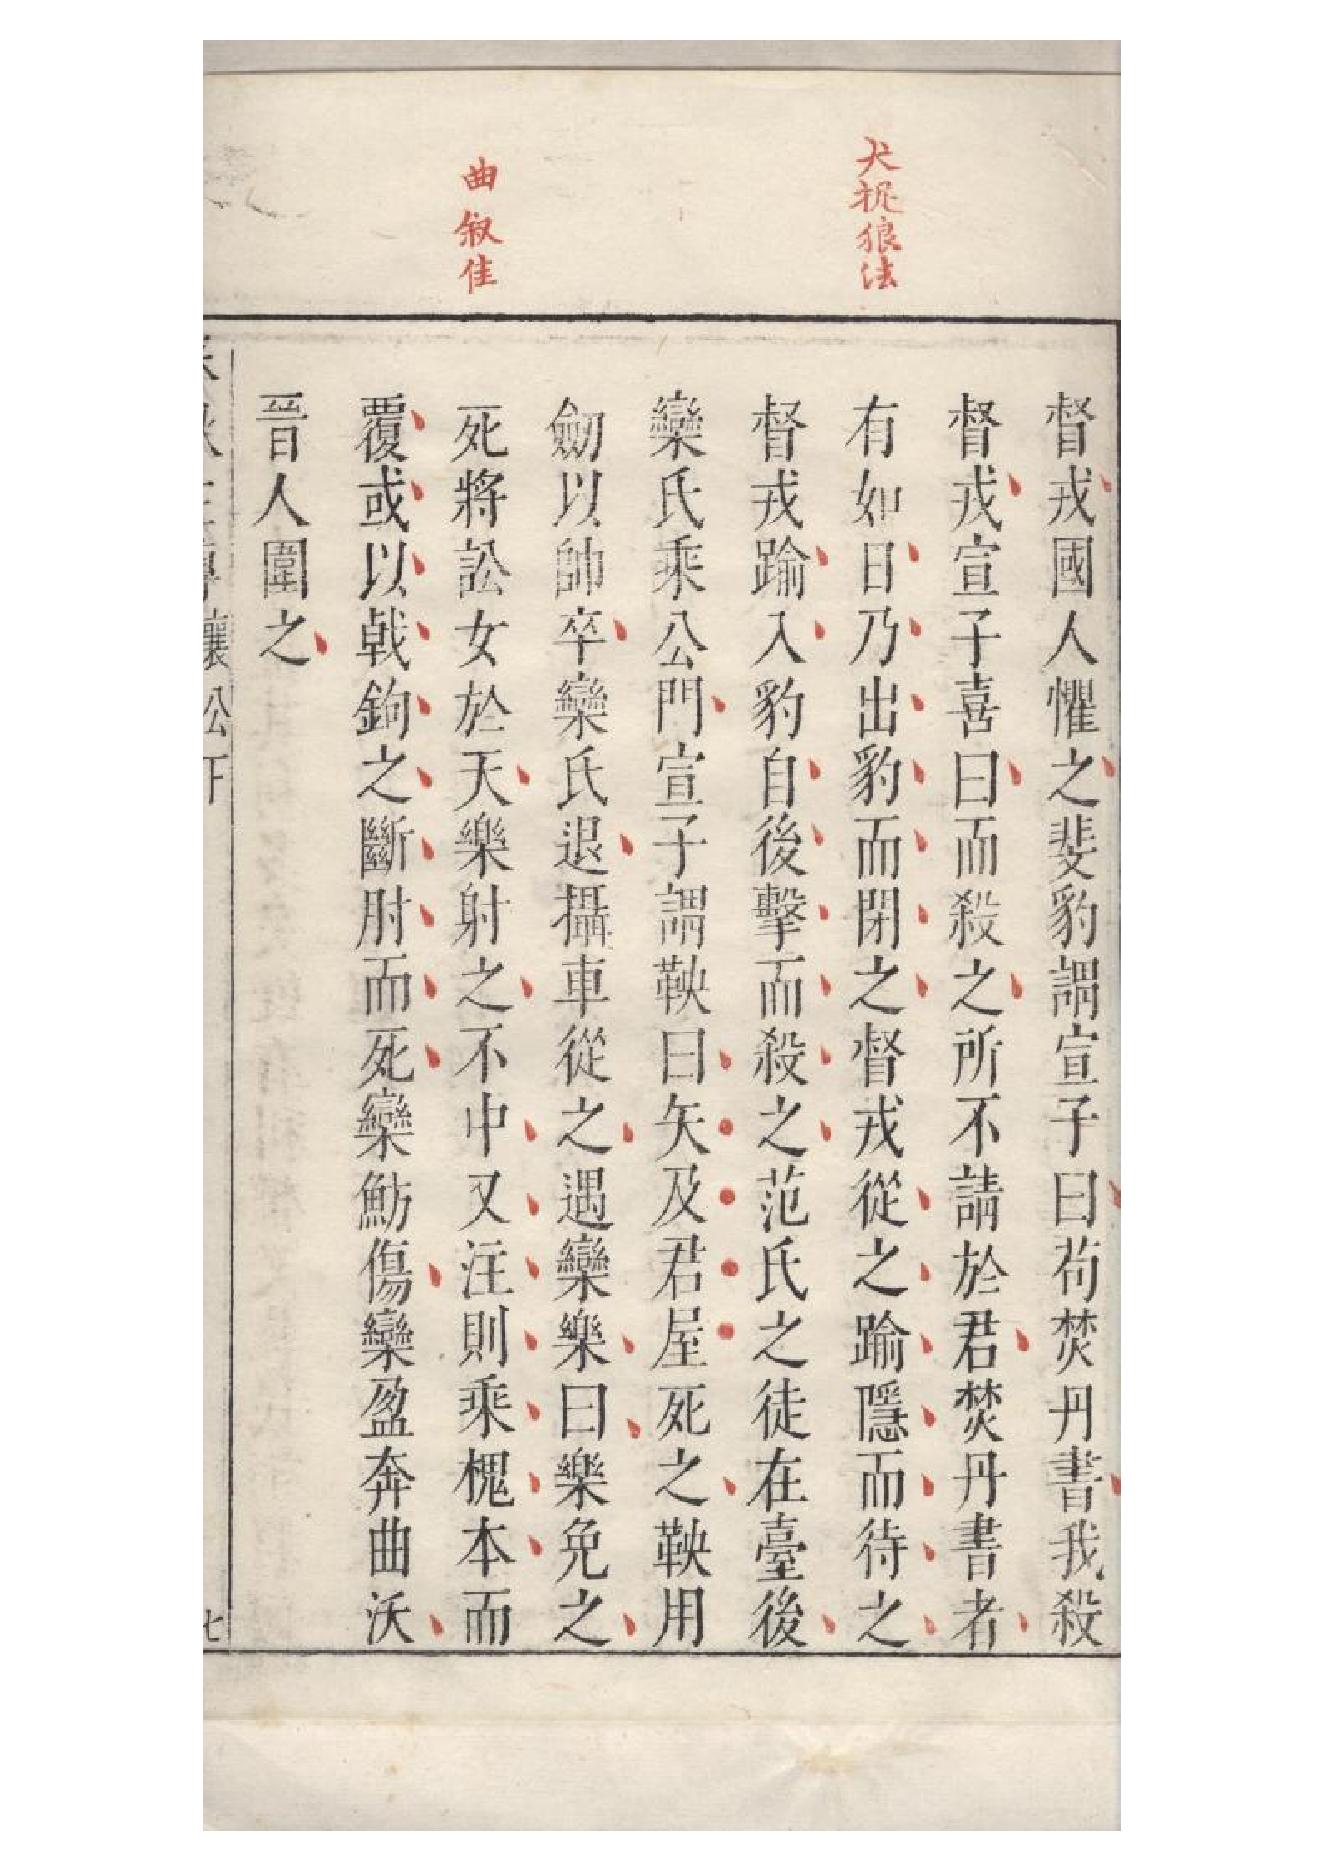 犬捉狼法
曲叙佳
督戎國人懼之斐豹謂宣子曰苟焚丹書我殺
督戎宣子喜曰而殺之所不請於君焚丹書者
有如日乃出豹而閉之督戎從之踰隱而待之
督戎踰入豹自後擊而殺之范氏之徒在臺後
欒氏乘公門宣子謂鞅曰矢及君屋死之鞅用
劒以帥卒欒氏退攝車從之遇欒樂曰樂免之
死將訟女於天樂射之不中又注則乘槐本而
覆或以戟鉤之斷肘而死欒魴傷欒盈奔曲沃
晉人圍之
襄公下
七